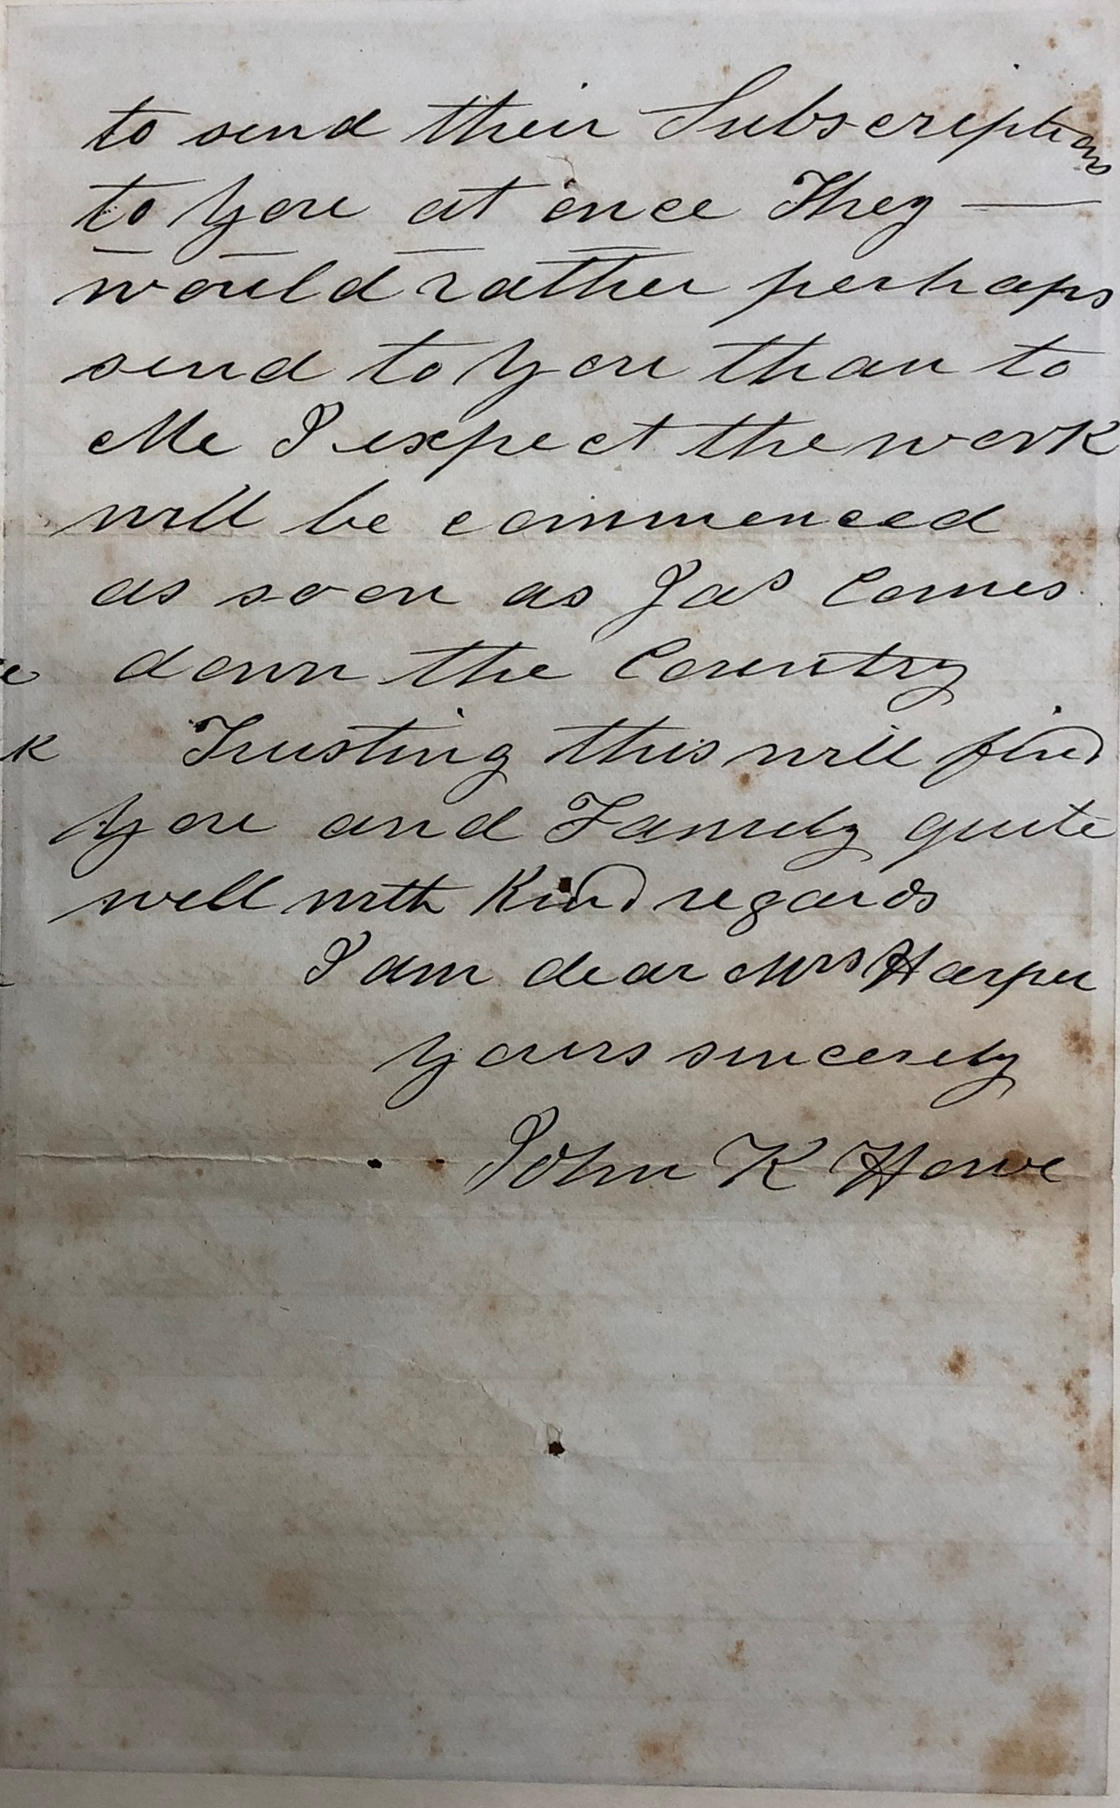 to send their Subscriptions
to you at once They —
would rather perhaps
send to you than to
Me I expect the work
will be commenced
as soon as Jas Comes
down the Country
k Trusting this will find
You and Family quite
well with Kind regards
I am dear Mrs Harper
yours sincerely
John K Howe